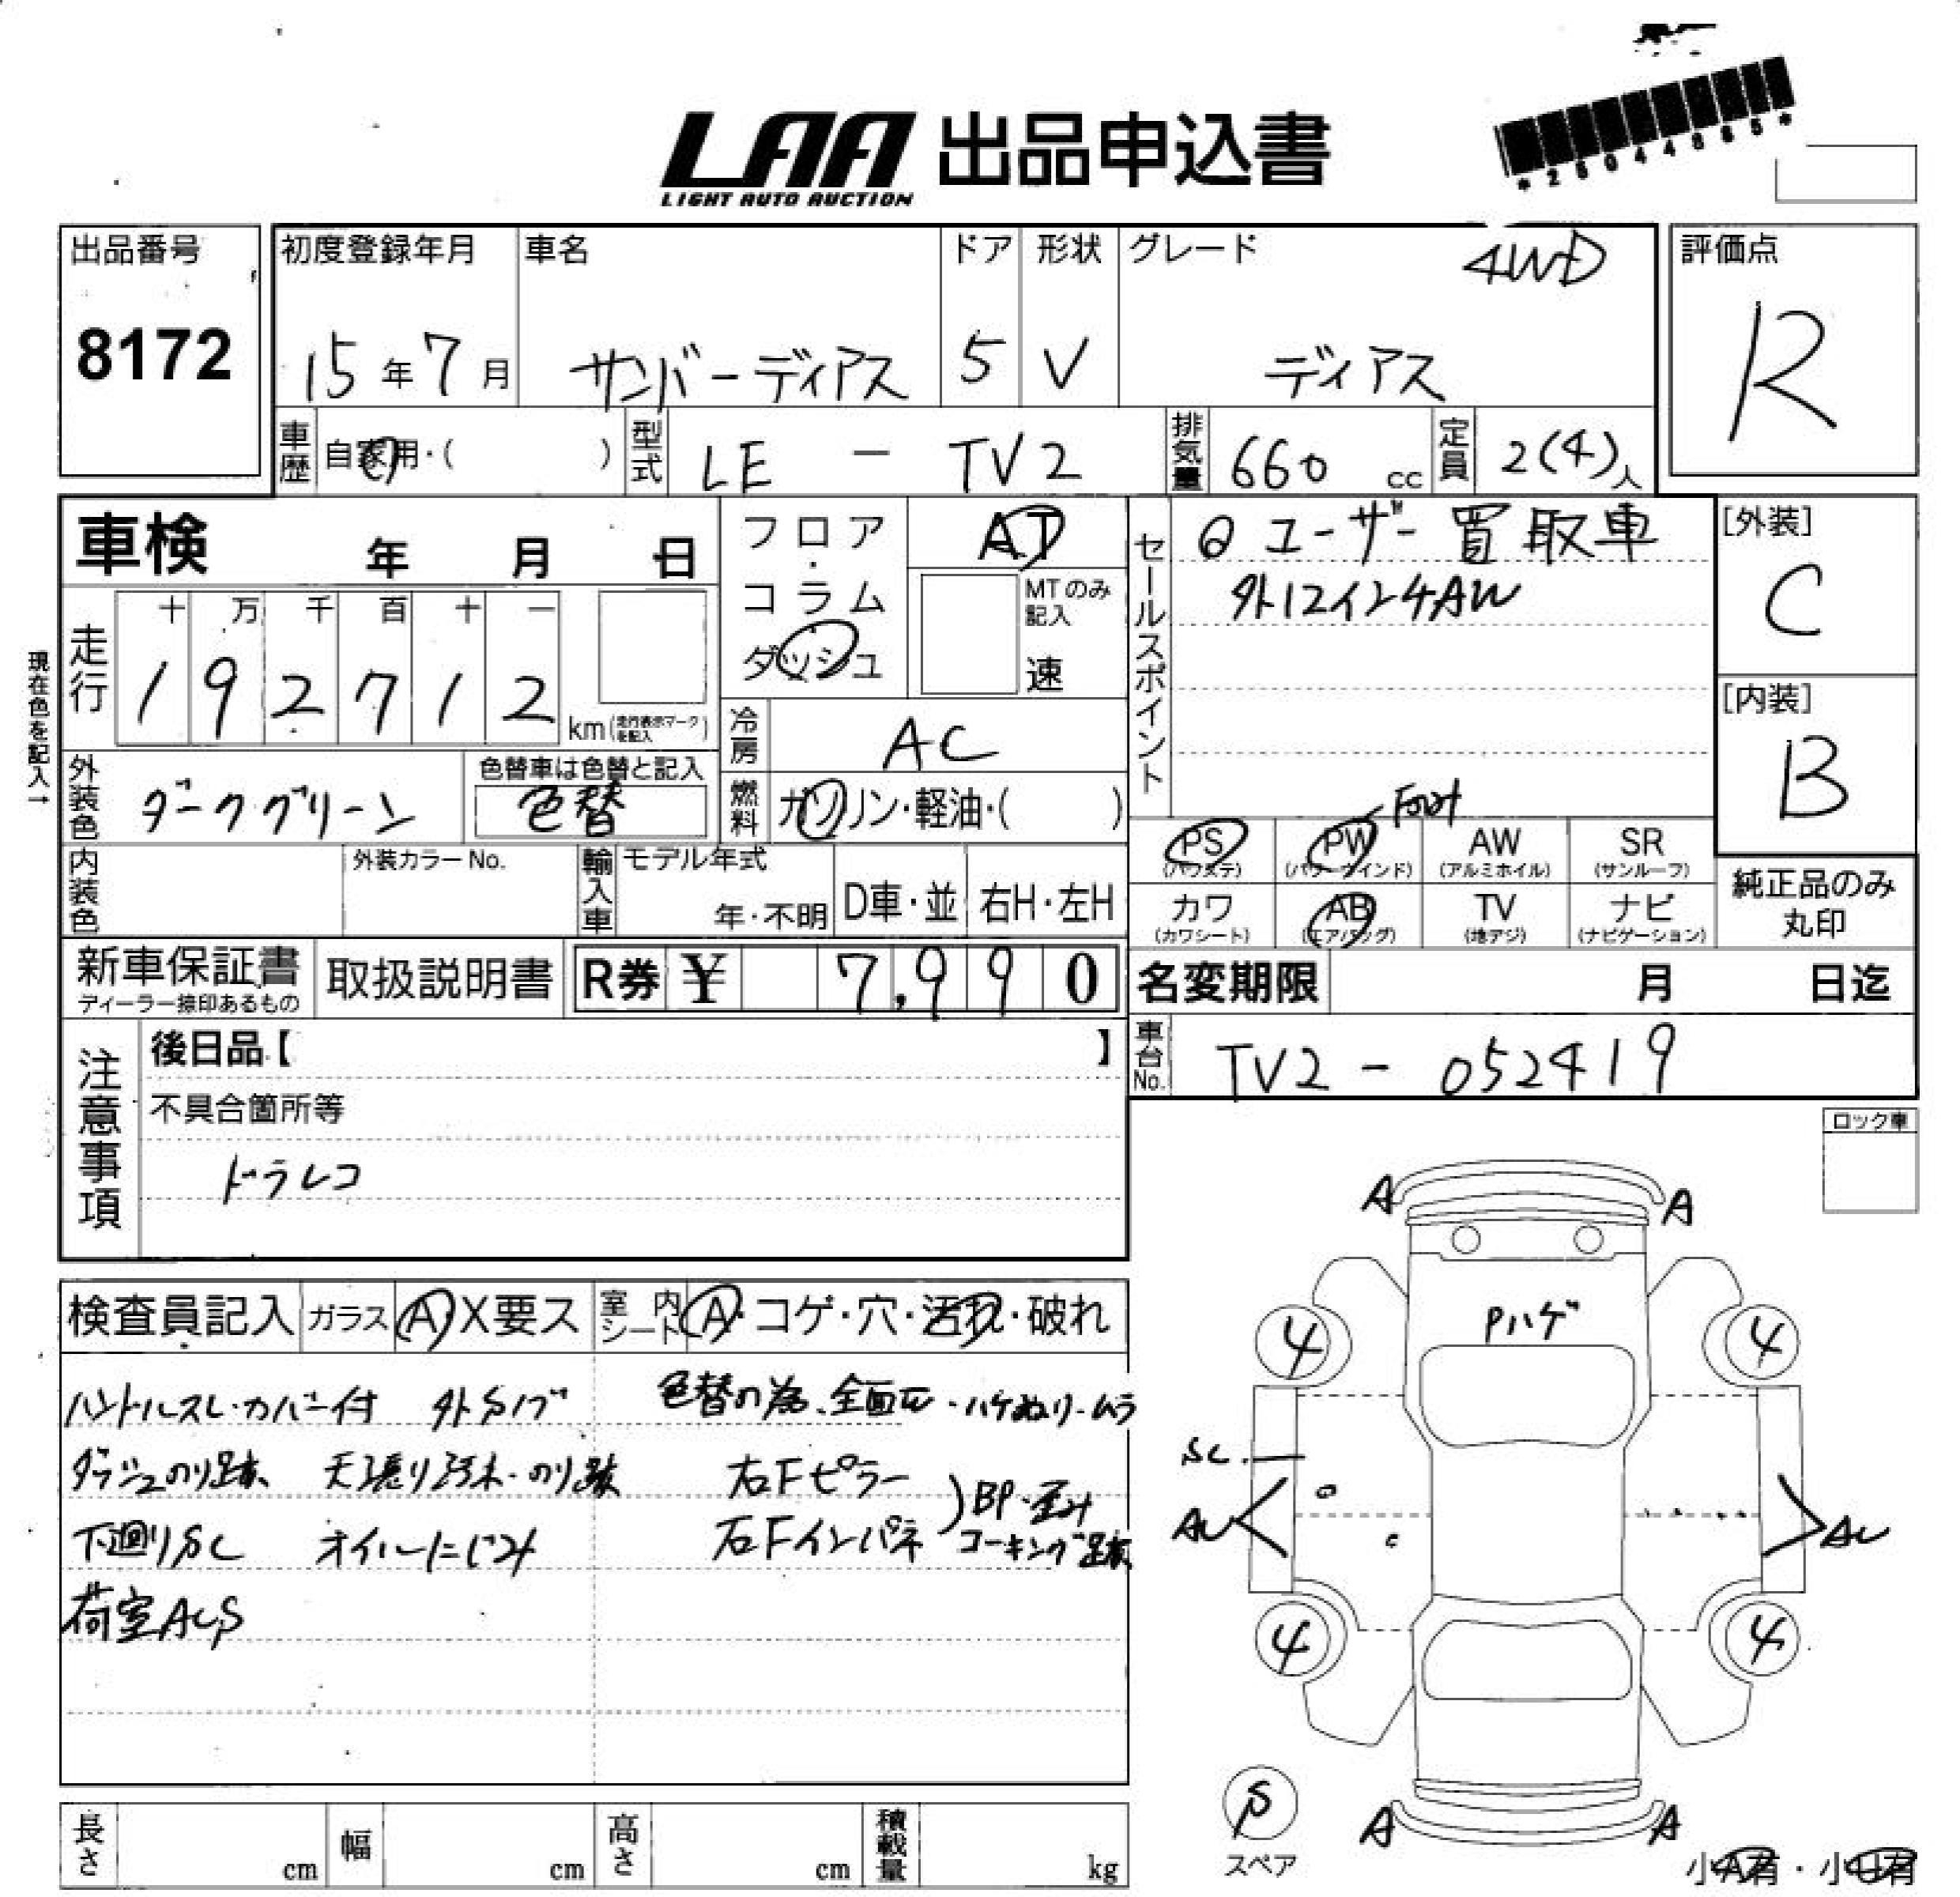 LAA 出品申込書
LIGHT AUTO AUCTION
出品番号
8172
初度登録年月
15年7月
車名
サンバーディアス
ドア
5
形状
V
グレード
4WD
ディアス
評価点
R
車歴 自家用・( )
型式 LE - TV2
排気量 660 cc
定員 2(4)人
車検 年 月 日
フロア・コラム ダッシュ
AT
MTのみ記入
速
セールスポイント
ユーザー買取車
外12インチAW
[外装]
C
[内装]
B
現在色を記入→
走行
十 万 千 百 十 一
1 9 2 7 1 2
km(走行表示マークを記入)
冷房 AC
外装色 ダークグリーン
色替車は色替と記入
色替
燃料 ガソリン・軽油・( )
Front
PS (パワステ)
PW (パワーウインド)
AW (アルミホイル)
SR (サンルーフ)
カワ (カワシート)
AB (エアバッグ)
TV (地デジ)
ナビ (ナビゲーション)
純正品のみ丸印
内装色
外装カラーNo.
輸入車
モデル年式
年・不明
D車・並
右H・左H
新車保証書
ディーラー捺印あるもの
取扱説明書
R券 ¥ 7,990
名変期限 月 日迄
車台No. TV2 - 052419
注意事項
後日品【 】
不具合箇所等
ドラレコ
ロック車
検査員記入 ガラス A X要ス 室内シート A・コゲ・穴・汚れ・破れ
ハンドルスレ・カバー付 外Sハブ
色替の為、全面・ハケぬり・ムラ
ダッシュのり跡 天張り汚れ・のり跡
右Fピラー
BP・歪み
下廻りSC オイルにじみ
右Fインパネ
コーキング跡
荷室ACS
A A
Pハゲ
4 4
SC
AU AU
C
4 4
S
スペア
A A
小A有・小U有
長さ cm
幅 cm
高さ cm
積載量 kg